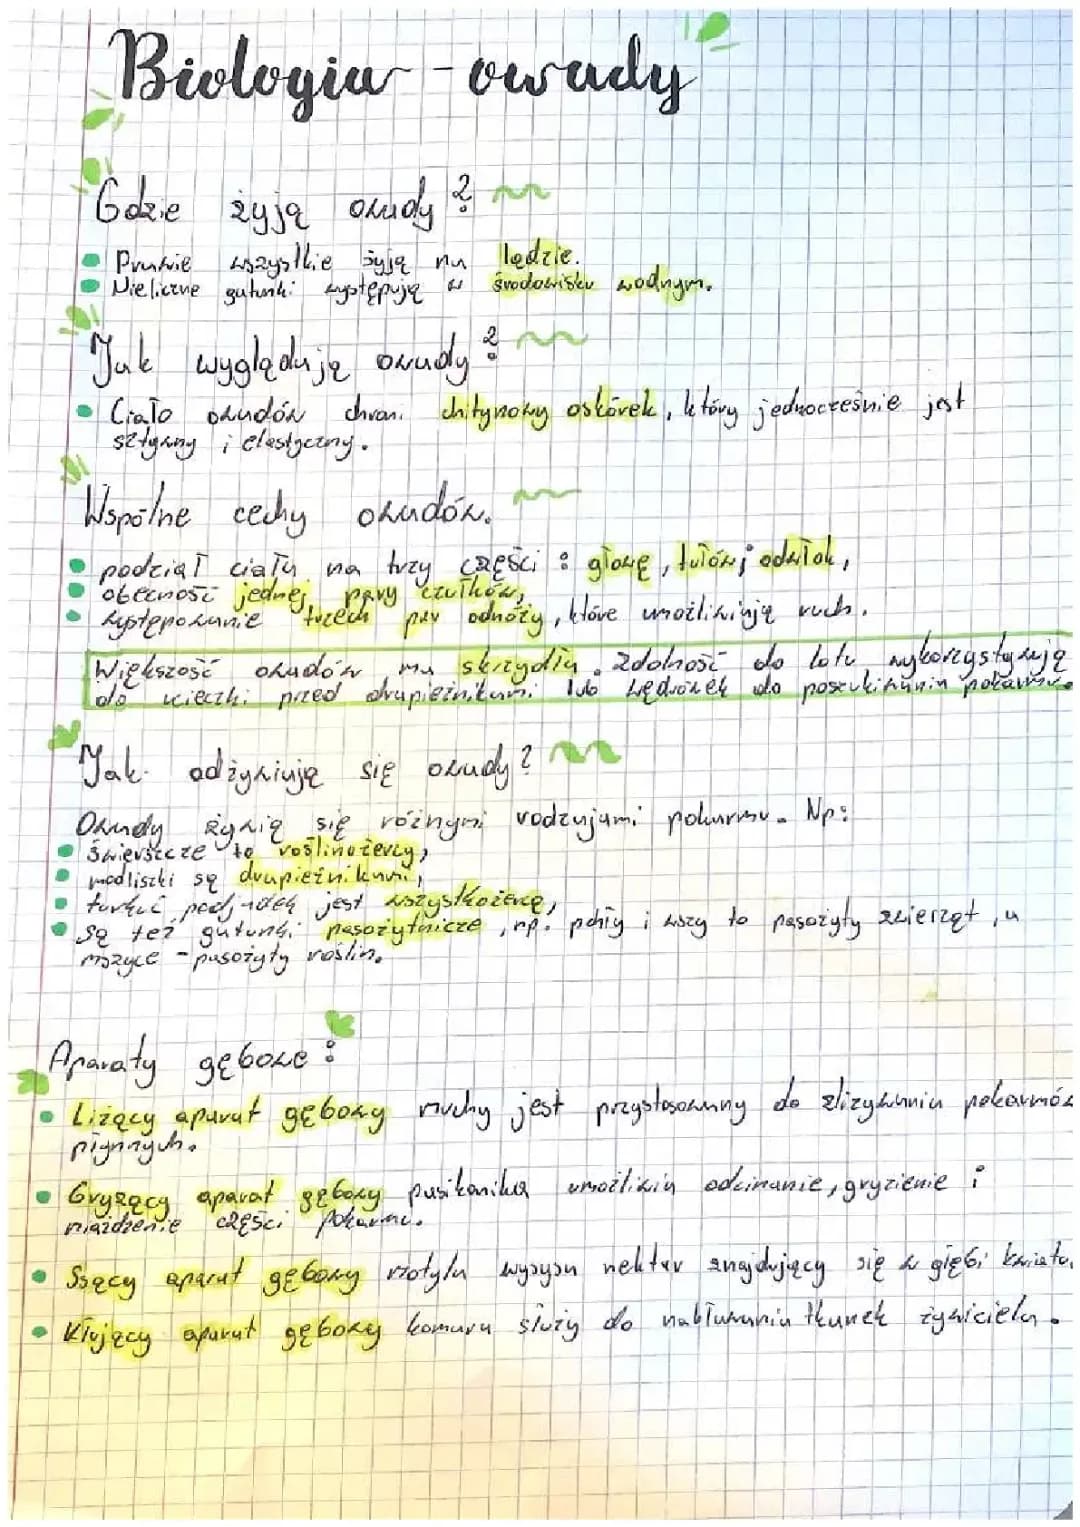 Biologia - owady
Gdzie żyją owady?
Prawie wszystkie żyją na lądzie.
Nieliczne gatunki występują w środowisku wodnym.
Jak wyglądają owady?
Ciało owadów chroni chitynowy oskórek, który jednocześnie jest
sztywny i elastyczny.
Wspólne cechy owadów.
podział ciała na trzy części: głowę, tułów i odwłok,
obecność jednej pary czułków,
występowanie trzech par odnóży, które umożliwiają ruch.
Większość owadów ma skrzydła. Zdolność do lotu wykorzystują
do ucieczki przed drapieżnikami lub wędrówek do poszukiwania pokarmu.
Jak odżywiają się owady?
Owady żywią się różnymi rodzajami pokarmu. Np:
świerszcze to roślinożercy,
modliszki są drapieżnikami,
turkuć podjadek jest wszystkożercą,
są też gatunki pasożytnicze, np. pchły i wszy to pasożyty zwierząt, a
mszyce - pasożyty roślin.
Aparaty gębowe:
Liżący aparat gębowy muchy jest przystosowany do zlizywania pokarmów
płynnych.
Gryzący aparat gębowy pasikonika umożliwia odcinanie, gryzienie i
miażdżenie części pokarmu.
Ssący aparat gębowy motyla wysysa nektar znajdujący się w głębi kwiatu.
Kłujący aparat gębowy komara służy do nakłuwania tkanek żywiciela.